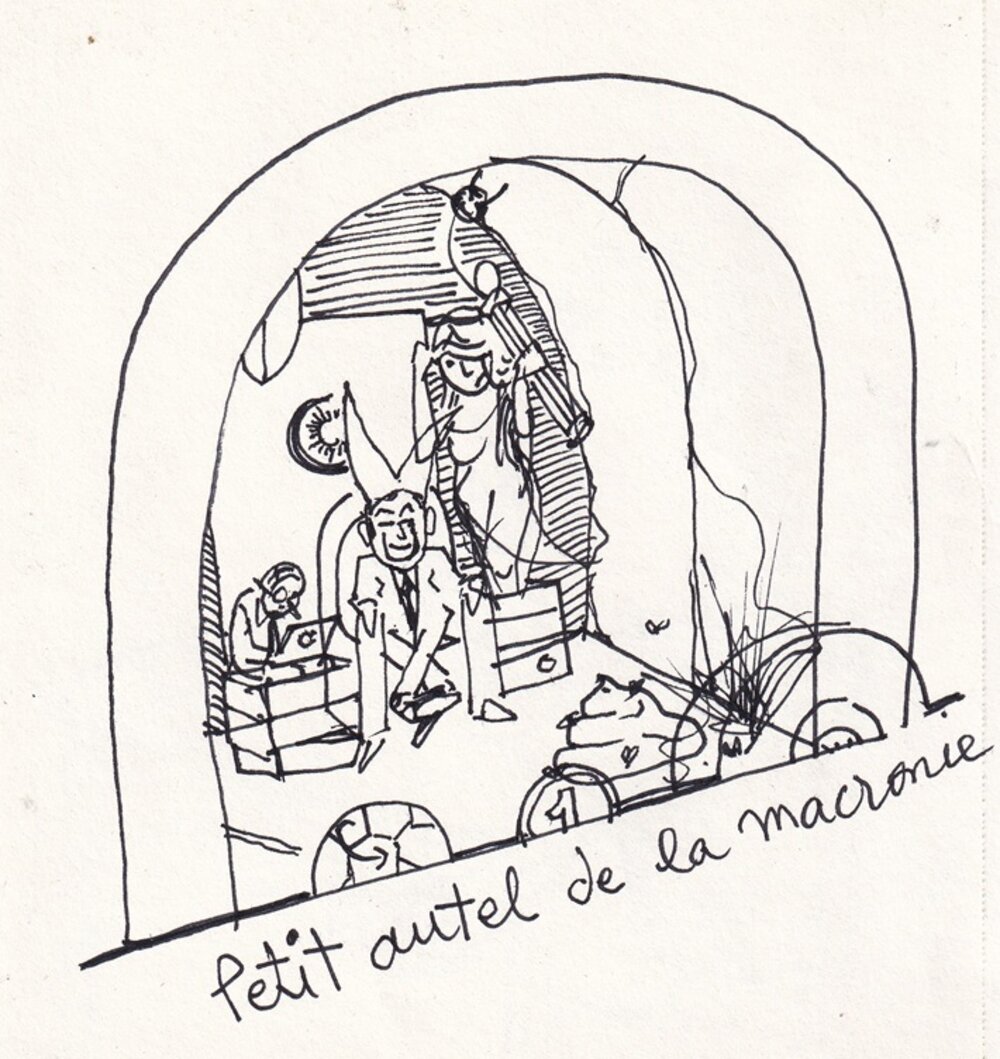 Petit autel de la macronie